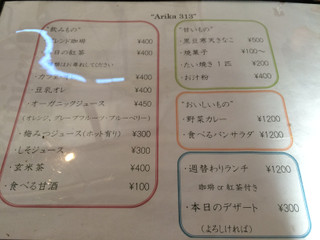 "Arika 313"
"飲みもの"
ブレンド珈琲 ¥400
本日の紅茶 ¥400
・カフェオレ ¥400
・豆乳オレ ¥400
・オーガニックジュース ¥450
(オレンジ、グレープフルーツ・ブルーベリー)
・梅みつジュース(ホット有り) ¥300
・しそジュース ¥300
・玄米茶 ¥400
・食べる甘酒 ¥100
"甘いもの"
・黒豆寒天きなこ ¥500
・焼菓子 ¥100～
・たい焼き1匹 ¥200
・お汁粉 ¥400
"おいしいもの"
・野菜カレー ¥1200
・食べるパンサラダ ¥1200
・週替わりランチ ¥1200
珈琲 or 紅茶付き
・本日のデザート ¥300
(よろしければ)